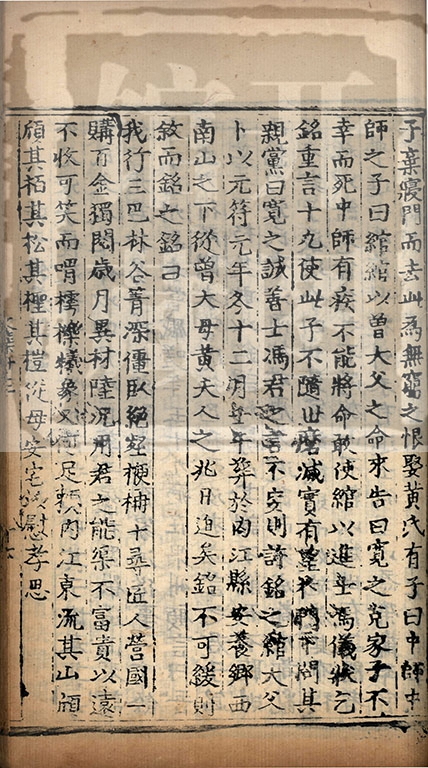 子棄寢門而去此為無窮之恨娶黃氏有子曰中師中
師之子曰綰綰以曾大父之命來告曰寬之克家子不
幸而死中師有疾不能將命敢使綰以進士馮儀狀乞
銘重言十九使此子不隨世磨滅實有望於門下問其
親黨曰寬之誠善士馮君之言不妄則許銘之綰大父
卜以元符元年冬十二月葬於內江縣安養鄉西
南山之下從曾大母黃夫人之兆日迫矣銘不可緩則
敘而銘之銘曰
我行三巴林谷菁深僵臥絕壑楩柟十尋匠人營國一
購百金獨閱歲月異材陸沉用君之能渠不富貴以遠
不收可笑而喟櫟犧象又足內江東流其山頎
頎其栢其松其檉其榿從母安宅以慰孝思